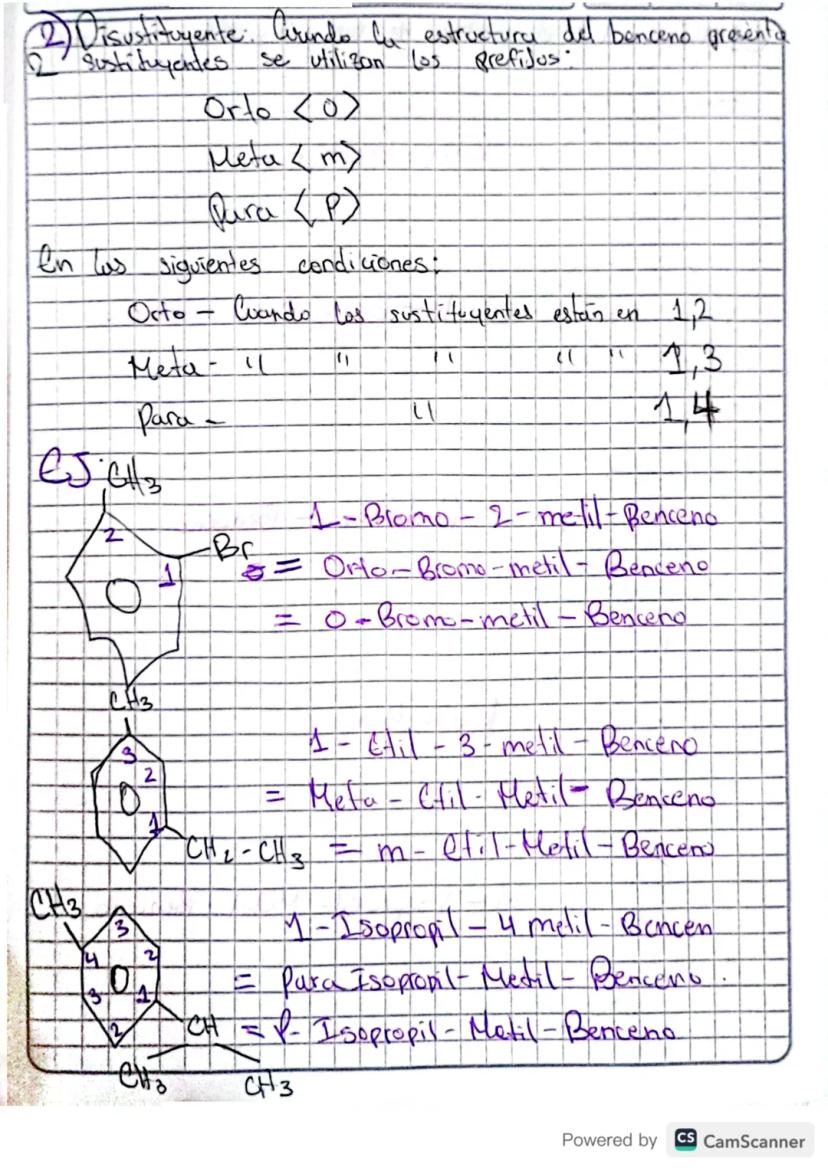 2) Disustituyente. Cuando la estructura del benceno presenta
2 sustituyentes se utilizan los prefijos:
Orto <o>
Meta <m>
Para <P>
En las siguientes condiciones:
Orto - Cuando los sustituyentes están en 1,2
Meta - " " " " " 1,3
Para - " 1,4
EJ:
CH3
2
Br
1
1-Bromo-2-metil-Benceno
= Orto-Bromo-metil-Benceno
= O-Bromo-metil-Benceno
CH3
3
2
1
CH2-CH3
1-Etil-3-metil-Benceno
= Meta-Etil-Metil-Benceno
= m-Etil-Metil-Benceno
CH3
3
4 2
3 1
2
CH
CH3 CH3
1-Isopropil-4 metil-Bencen
= Para Isopropil-Metil-Benceno.
= P-Isopropil-Metil-Benceno
Powered by CS CamScanner